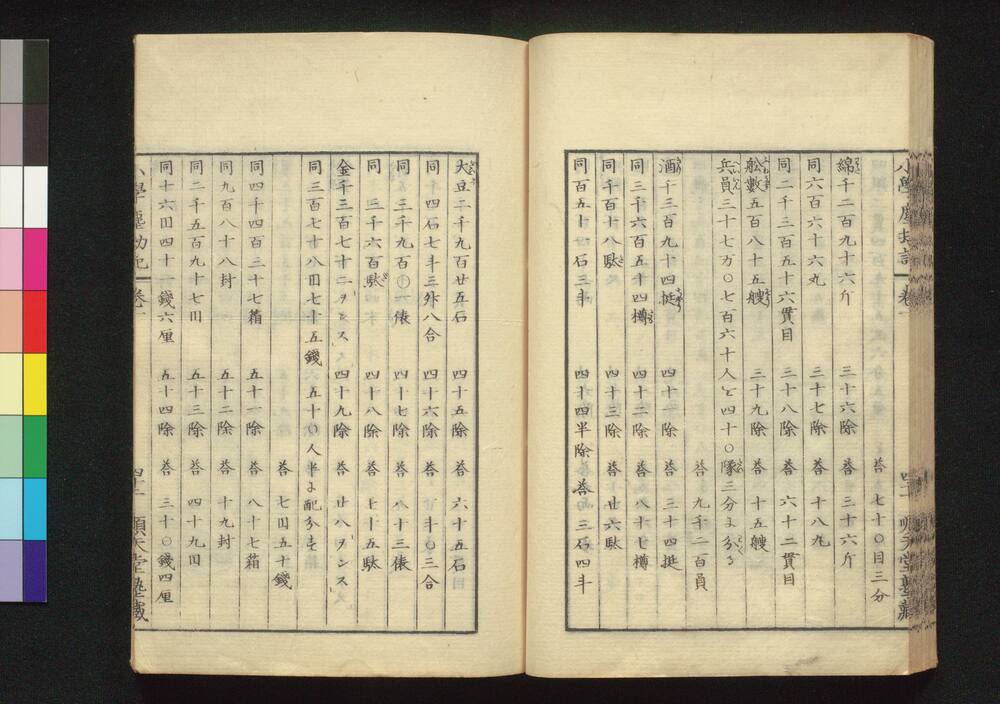 小學塵劫記 卷一 四十一 順天堂塾藏
荅 七十〇目三分
綿千二百九十六斤 三十六除 荅 三十六斤
同六百六十六丸 三十七除 荅 十八丸
同二千三百五十六貫目 三十八除 荅 六十二貫目
舩數五百八十五艘 三十九除 荅 十五艘
兵員三十七万〇七百六十人を四十〇隊三分に分る
荅 九千二百員
酒千三百九十四挺 四十除 荅 三十四挺
同三千六百五十四樽 四十二除 荅 八十七樽
同千百十八駄 四十三除 荅 廿六駄
同百五十一石三斗 四十四半除 荅 三石四斗
大豆二千九百廿五石 四十五除 荅 六十五石
同十四石七斗三升八合 四十六除 荅 三斗〇三合
同三千九百〇一俵 四十七除 荅 八十三俵
同三千六百駄 四十八除 荅 七十五駄
金千三百七十二ヲンスス 四十九除 荅 廿八ヲンスス
同三百七十八円七十五錢 五十〇人半に配分す
荅 七円五十錢
同四千四百三十七箱 五十一除 荅 八十七箱
同九百八十八封 五十二除 荅 十九封
同二千五百九十七円 五十三除 荅 四十九円
同十六円四十一錢六厘 五十四除 荅 三十〇錢四厘
小學塵劫記 卷一 四十二 順天堂塾藏